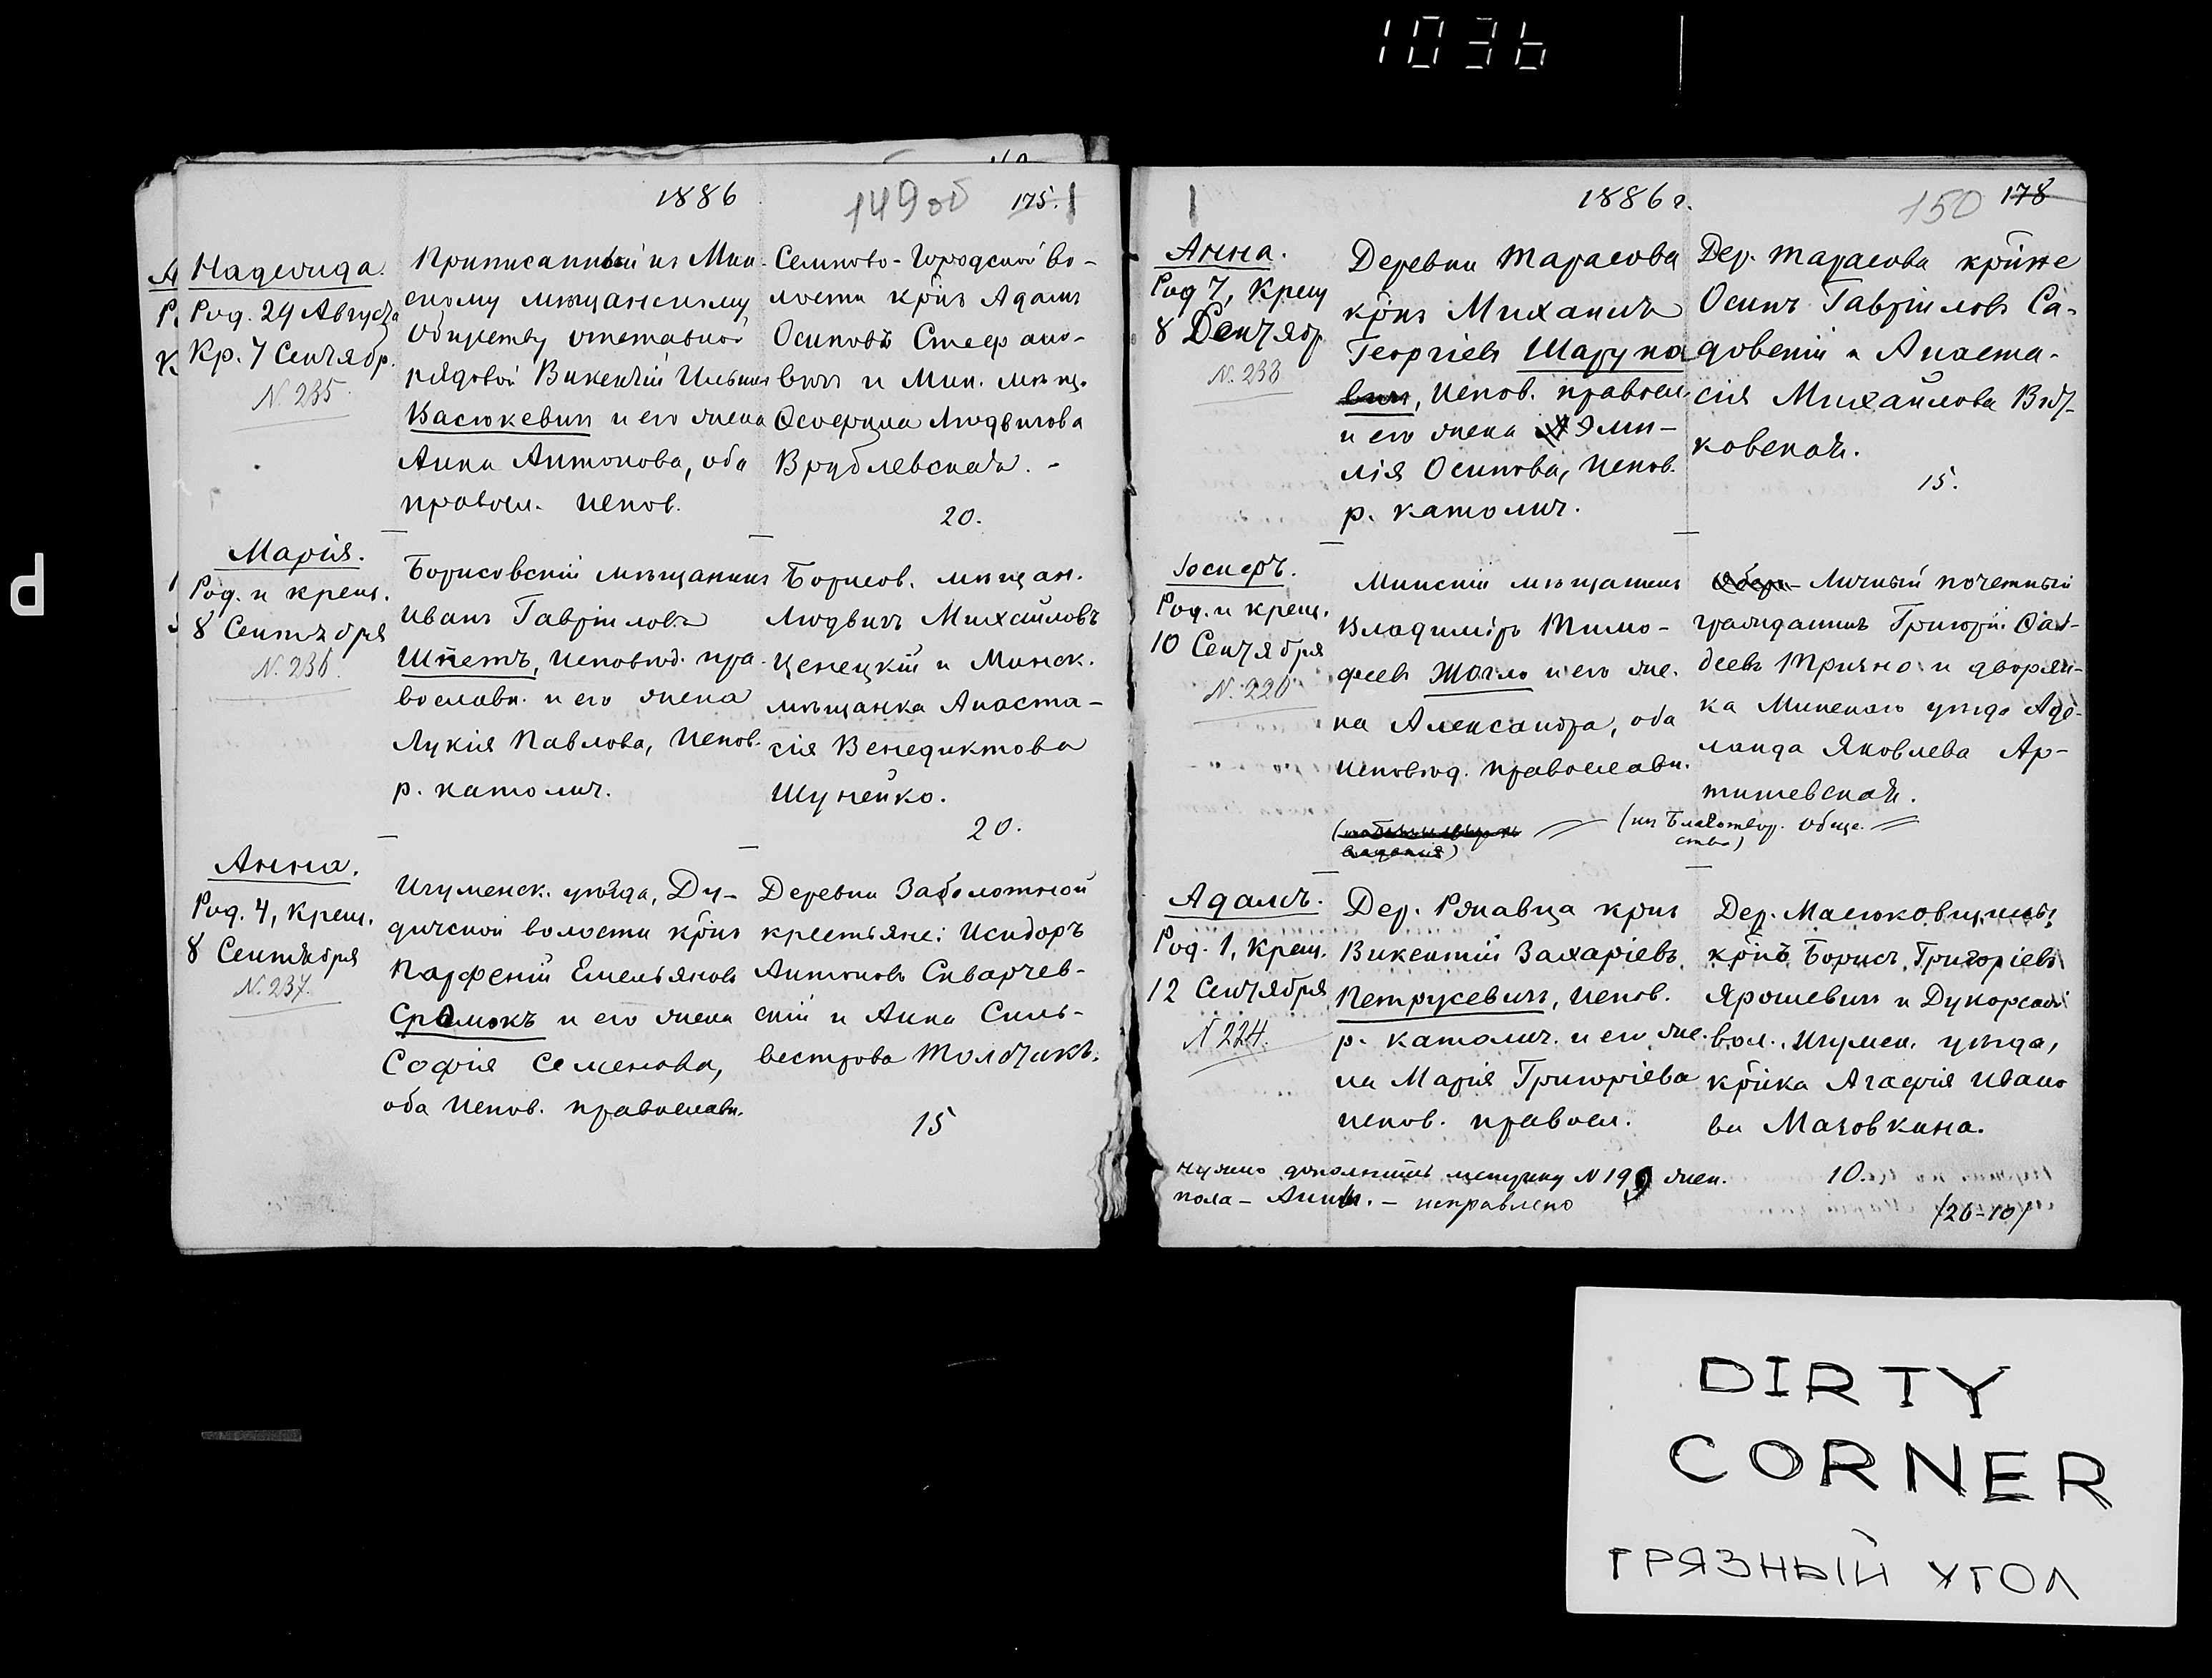 1036
1886
149 об
175.
Надежда.
Род. 29 Августа
Кр. 7 Сентябр.
N. 235.
Приписанный къ Мин-
скому мѣщанскому
обществу отставной
рядовой Викентій Ильинъ
Васюкевичъ и его жена
Анна Антонова, оба
правосл. испов.
Семково-Городской во-
лости кр̃нъ Адамъ
Осиповъ Стефано-
вичъ и Мин. мѣщ.
Людвигова
Врублевская. -
20.
Марія.
Род. и крещ.
8 Сентября
N. 236.
Борисовскій мѣщанинъ
Иванъ Гавріиловъ
Шпетъ, исповѣд. пра-
вославн. и его жена
Лукія Павлова, испов.
р. католич.
Борисов. мѣщан.
Людвигъ Михайловъ
Ценецкій и Минск.
мѣщанка Анаста-
сія Венедиктова
Шунейко.
20.
Анна.
Род. 4, Крещ.
8 Сентября
N. 237.
Игуменск. уѣзда, Ду-
дичской волости кр̃нъ
Парфеній Емельяновъ
и его жена
Софія Семенова,
оба испов. православн.
Деревни Заболотной
крестьяне: Исидоръ
Антоновъ Скварчев-
скій и Анна Силь-
вестрова Толстикъ.
15
1886 г.
150
178
Анна.
Род 7, Крещ
8 Сентябр
N. 238
Деревни Тарасова
кр̃нъ Михаилъ
Георгіевъ Шаруно
вичъ, испов. правосл.
и его жена Эми-
лія Осипова, испов.
р. католич.
Дер. Тарасова кр̃яне
Осипъ Гавріиловъ Са-
довскій и Анаста-
сія Михайлова Вит-
ковская.
15.
Іосифъ.
Род. и крещ.
10 Сентября
N. 220
Минскій мѣщанинъ
Владиміръ Тимо-
феевъ Жогло и его же-
на Александра, оба
исповѣд. православн.
Личный почетный
гражданинъ Григорій Фад-
деевъ и дворян-
ка Минскаго уѣзда Аде-
лаида Яковлева Ар-
тишевская.
(въ Благотвор. Обще-
ство)
Адамъ.
Род. 1, Крещ.
12 Сентября
N 224.
Дер. Ржавца кр̃нъ
Викентій Захаріевъ
Петрусевичъ, испов.
р. католич. и его же-
на Марія Григоріева
испов. правосл.
Дер. Масюковщины
кр̃нъ Борисъ Григоріевъ
Ярошевичъ и Дукорской
вол. Игумен. уѣзда,
кр̃нка Агафія Ивано
ва Мазовкина.
10.
Нужно дополнить метрику N 199 жен.
пола - Анны. - исправлено
/26-10/
DIRTY
CORNER
ГРЯЗНЫЙ УГОЛ